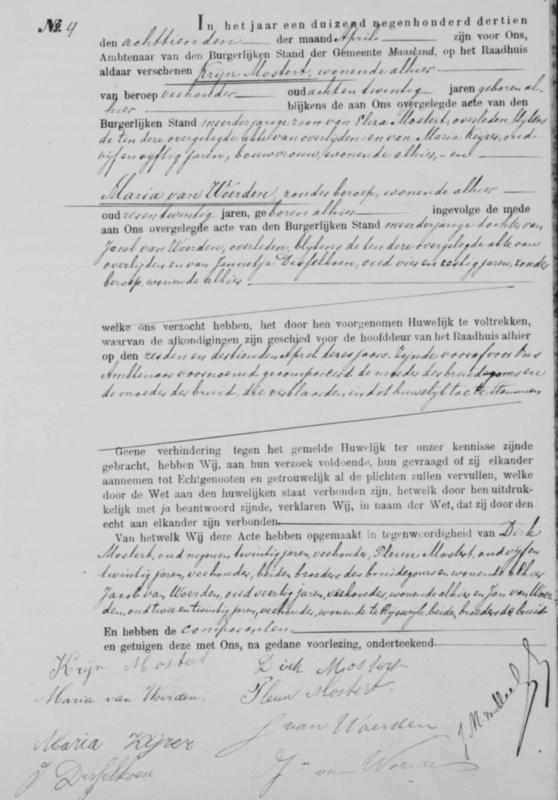 No. 4 In het jaar een duizend negenhonderd dertien
den achttienden der maand April zijn voor Ons,
Ambtenaar van den Burgerlijken Stand der Gemeente Maasland, op het Raadhuis
aldaar verschenen Krijn Mostert, wonende alhier
van beroep veehouder oud acht en twintig jaren geboren al-
hier blijkens de aan Ons overgelegde acte van den
Burgerlijken Stand meerderjarige zoon van Pleza Mostert, overleden, blijkens
de ten deze overgelegde acte van overlijden en van Maria Keijzer, oud
vijf en vijftig jaren, bouwvrouw, wonende alhier, en
Maria van Woerden, zonder beroep, wonende alhier
oud zes en twintig jaren, geboren alhier ingevolge de mede
aan Ons overgelegde acte van den Burgerlijken Stand meerderjarige dochter van
Jacob van Woerden, overleden, blijkens de ten deze overgelegde akte van
overlijden en van Jannetje Disselkoen, oud vier en zestig jaren, zonder
beroep, wonende alhier
welke ons verzocht hebben, het door hen voorgenomen Huwelijk te voltrekken,
waarvan de afkondigingen zijn geschied voor de hoofddeur van het Raadhuis alhier
op den zesden en dertienden April dezes jaars. Zijnde vooraf voor Ons
Ambtenaar voornoemd gecompareerd de moeder des bruidegoms en
de moeder der bruid, die verklaarden, en dit huwelijk toe te stemmen
Geene verhindering tegen het gemelde Huwelijk ter onzer kennisse zijnde
gebracht, hebben Wij, aan hun verzoek voldoende, hun gevraagd of zij elkander
aannemen tot Echtgenooten en getrouwelijk al de plichten zullen vervullen, welke
door de Wet aan den huwelijken staat verbonden zijn, hetwelk door hen uitdruk-
kelijk met ja beantwoord zijnde, verklaren Wij, in naam der Wet, dat zij door den
echt aan elkander zijn verbonden.
Van hetwelk Wij deze Acte hebben opgemaakt in tegenwoordigheid van Dirk
Mostert, oud negen en twintig jaren, veehouder, Pleun Mostert, oud vijf en
twintig jaren, veehouder, beiden broeders des bruidegoms en wonende alhier
Jacob van Woerden, oud veertig jaren, veehouder, wonende alhier en Jan van Woer-
den, oud twee en twintig jaren, veehouder, wonende te Rijswijk, beide, broeders der bruid
En hebben de comparanten
en getuigen deze met Ons, na gedane voorlezing, onderteekend.
Krijn Mostert Dirk Mostert
Maria van Woerden. Pleun Mostert.
J van Woerden
Maria Keijzer
J Disselkoen J van Woerden